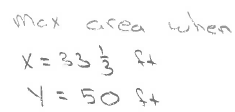 Max area when
X = 33 1/3 ft
Y = 50 ft